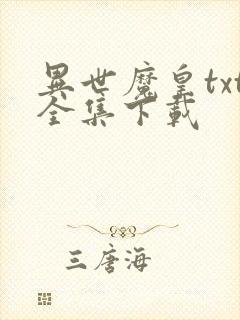 異世魔皇txt
全集下載
三唐海